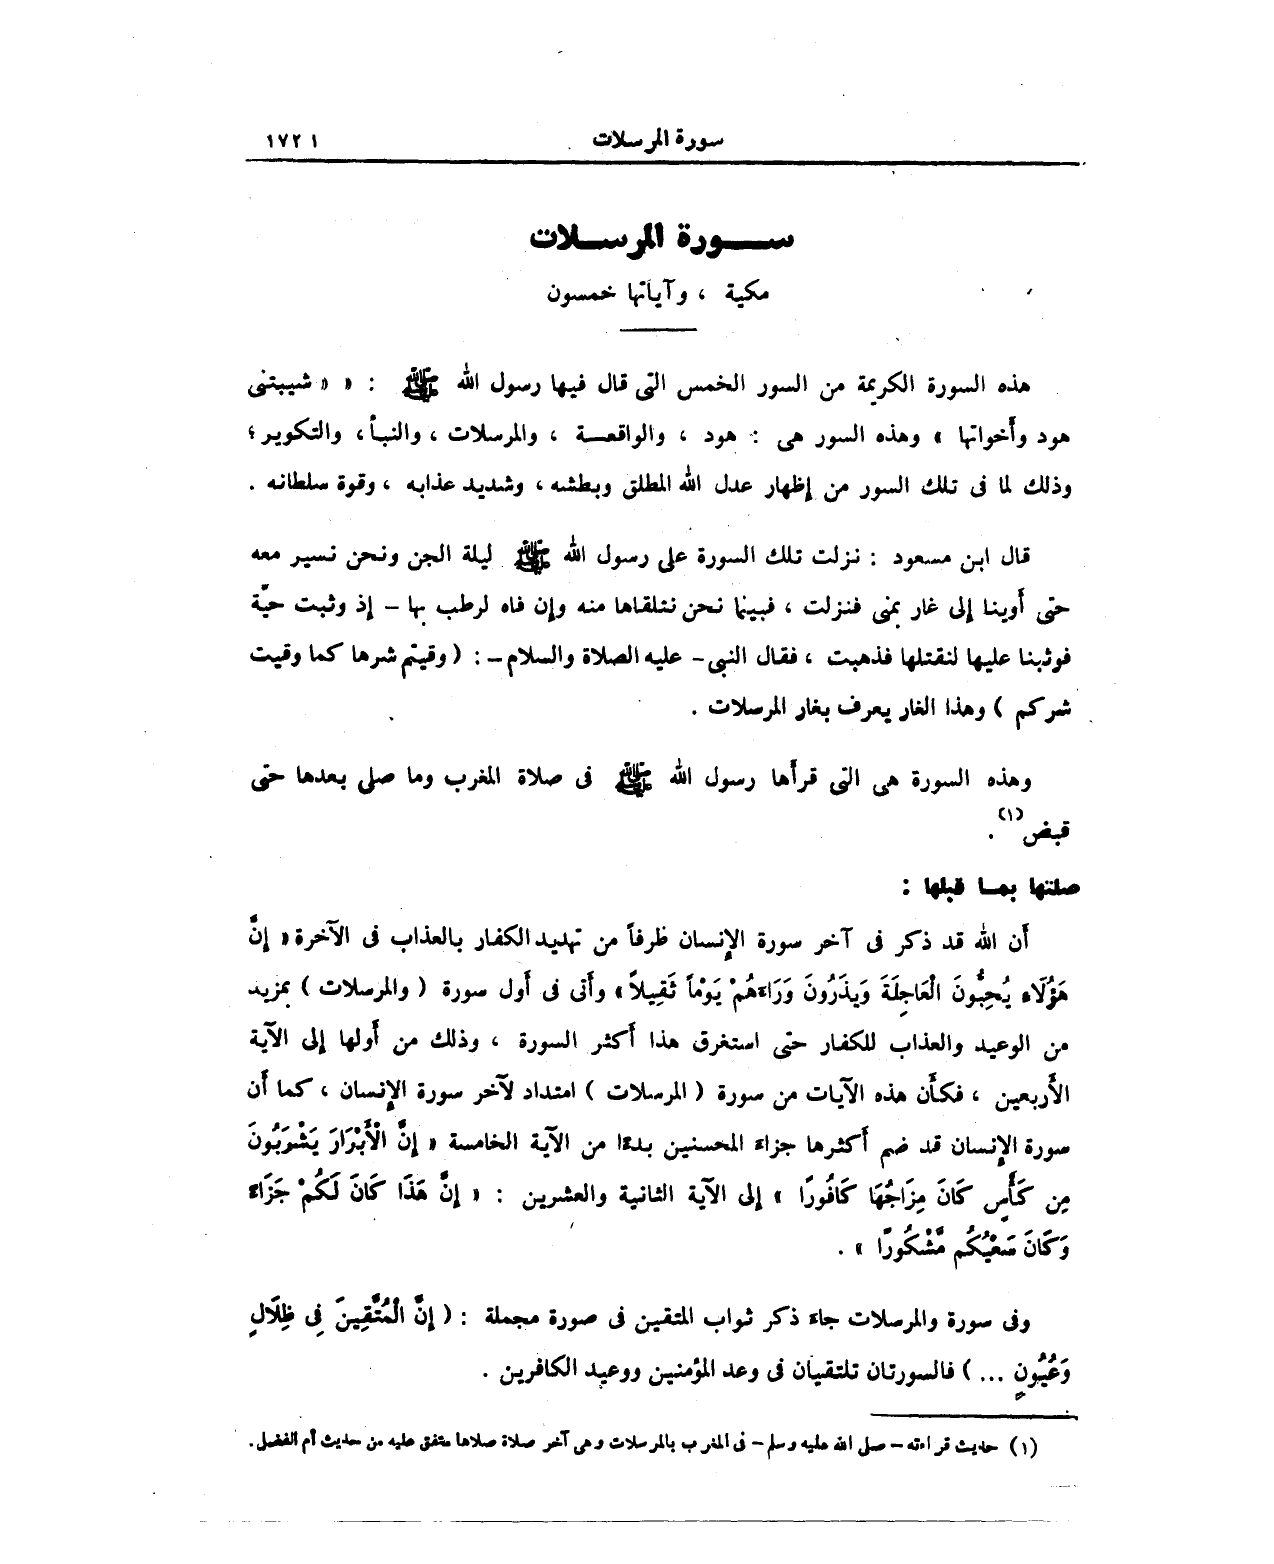 سورة المرسلات ١٧٢١
سورة المرسلات
مكية ، وآياتها خمسون
هذه السورة الكريمة من السور الخمس التى قال فيها رسول الله ﷺ : « « شيبتنى
هود وأخواتها » وهذه السور هى : هود ، والواقعة ، والمرسلات ، والنبأ ، والتكوير ؛
وذلك لما فى تلك السور من إظهار عدل الله المطلق وبطشه ، وشديد عذابه ، وقوة سلطانه .
قال ابن مسعود : نزلت تلك السورة على رسول الله ﷺ ليلة الجن ونحن نسير معه
حتى أوينا إلى غار بمنى فنزلت ، فبينما نحن نتلقاها منه وإن فاه لرطب بها – إذ وثبت حيّة
فوثبنا عليها لنقتلها فذهبت ، فقال النبى – عليه الصلاة والسلام – : ( وقيتم شرها كما وقيت
شركم ) وهذا الغار يعرف بغار المرسلات .
وهذه السورة هى التى قرأها رسول الله ﷺ فى صلاة المغرب وما صلى بعدها حتى
قبض (١) .
صلتها بما قبلها :
أن الله قد ذكر فى آخر سورة الإنسان طرفاً من تهديد الكفار بالعذاب فى الآخرة « إِنَّ
هَؤُلَاءِ يُحِبُّونَ الْعَاجِلَةَ وَيَذَرُونَ وَرَاءَهُمْ يَوْماً ثَقِيلاً » وأتى فى أول سورة ( والمرسلات ) بمزيد
من الوعيد والعذاب للكفار حتى استغرق هذا أكثر السورة ، وذلك من أولها إلى الآية
الأربعين ، فكأن هذه الآيات من سورة ( المرسلات ) امتداد لآخر سورة الإنسان ، كما أن
سورة الإنسان قد ضم أكثرها جزاء المحسنين بدءا من الآية الخامسة « إِنَّ الْأَبْرَارَ يَشْرَبُونَ
مِن كَأْسٍ كَانَ مِزَاجُهَا كَافُورًا » إلى الآية الثانية والعشرين : « إِنَّ هَذَا كَانَ لَكُمْ جَزَاءً
وَكَانَ سَعْيُكُم مَّشْكُورًا » .
وفى سورة والمرسلات جاء ذكر ثواب المتقين فى صورة مجملة : ( إِنَّ الْمُتَّقِينَ فِى ظِلَالٍ
وَعُيُونٍ ... ) فالسورتان تلتقيان فى وعد المؤمنين ووعيد الكافرين .
(١) حديث قراءته – صلى الله عليه وسلم – فى المغرب بالمرسلات وهى آخر صلاة صلاها متفق عليه من حديث أم الفضل .